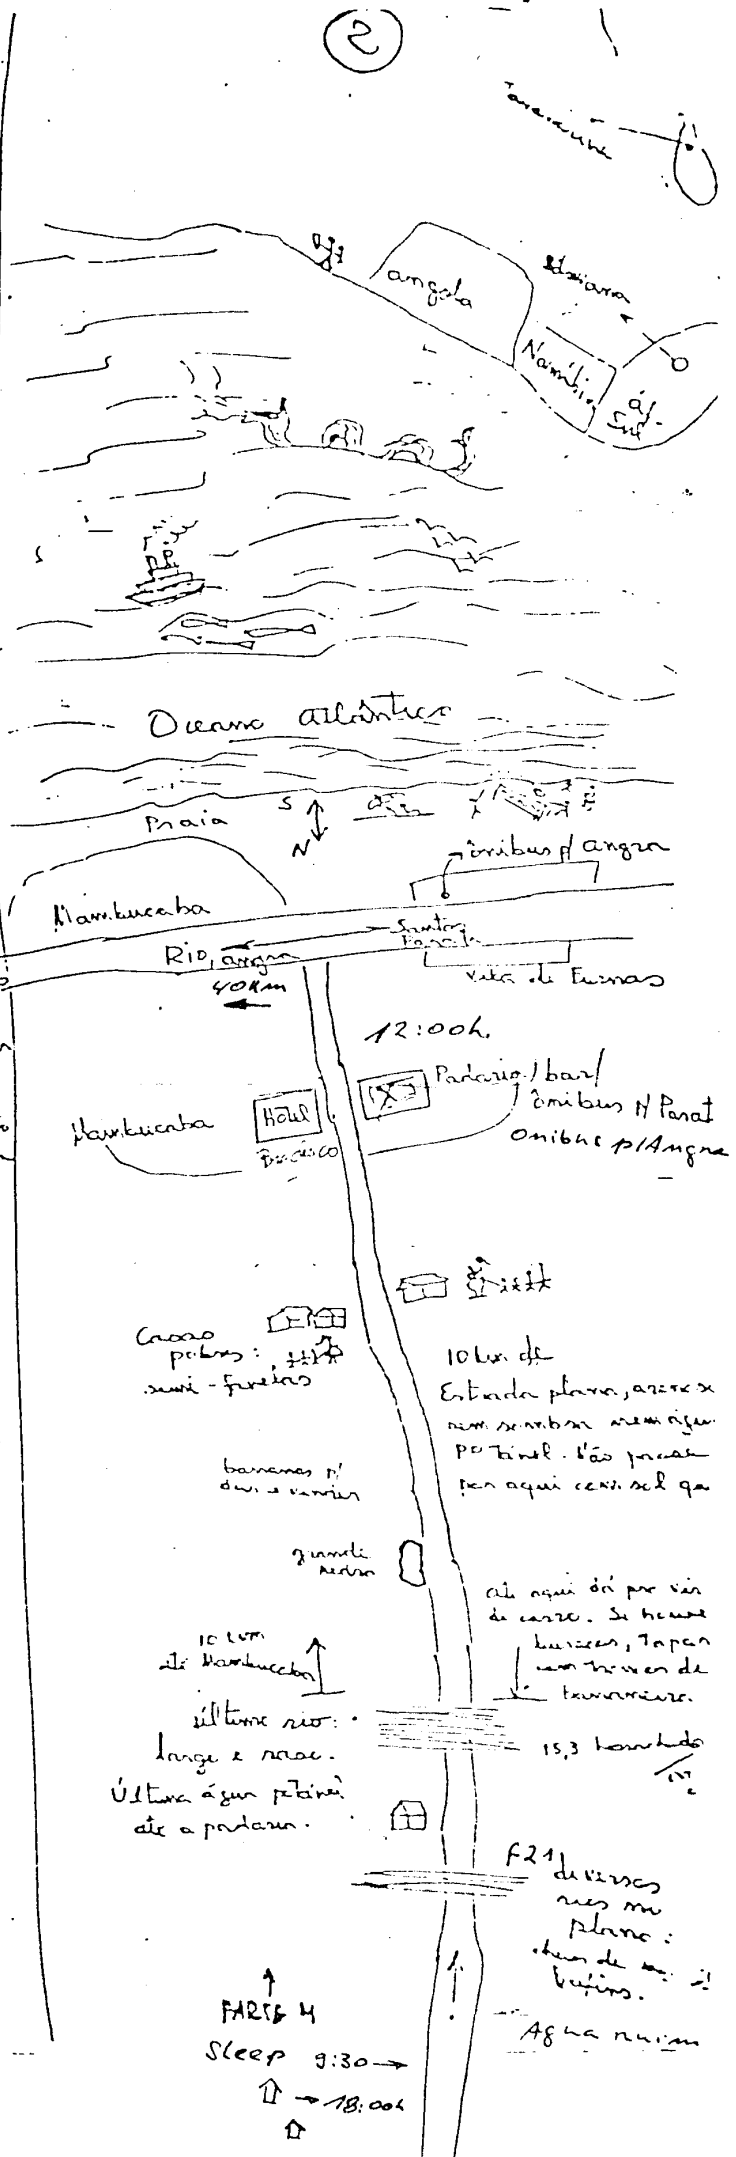 2
angola
Namíbia
áf-
Sul
Oceano atlântico
Praia
S
N
ônibus p/ angra
Mambucaba
Santos
Rio, angra
40 Km
vila de Furnas
12:00h.
Padaria / bar /
ônibus p/ Parat
Onibus p/Angra
Hotel
Mambucaba
Casas
pobres:
semi-favelas
10 km de
Estrada plana,
sem sombra nem água
potável. Não passe
por aqui com sol
bananas p/
grande
pedra
até aqui dá pra vir
de carro. Se houver
buracos, tapar
com
10 km
até Mambucaba
último rio:
largo e raso.
15,3
Última água potável
até a padaria.
F21
diversos
rios no
plano:
cheios de
Agua ruim
PARTE M
Sleep 9:30 →
→ 18:00h